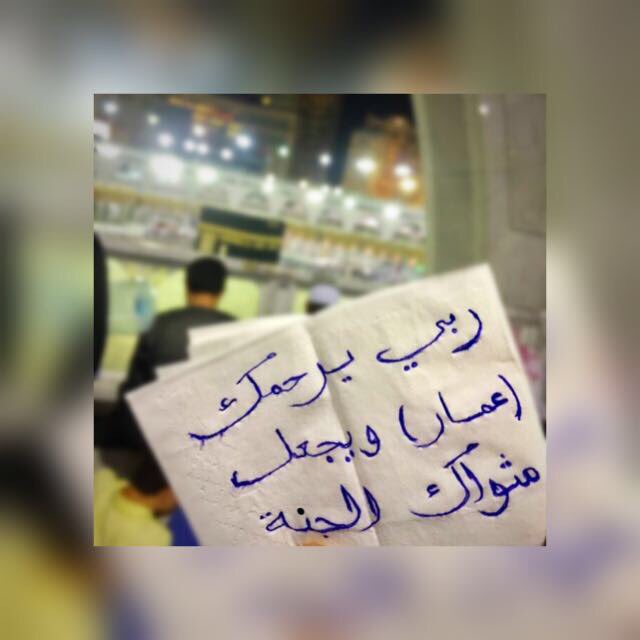 ربي يرحمك
(عمار) ويجعل
مثواك الجنة